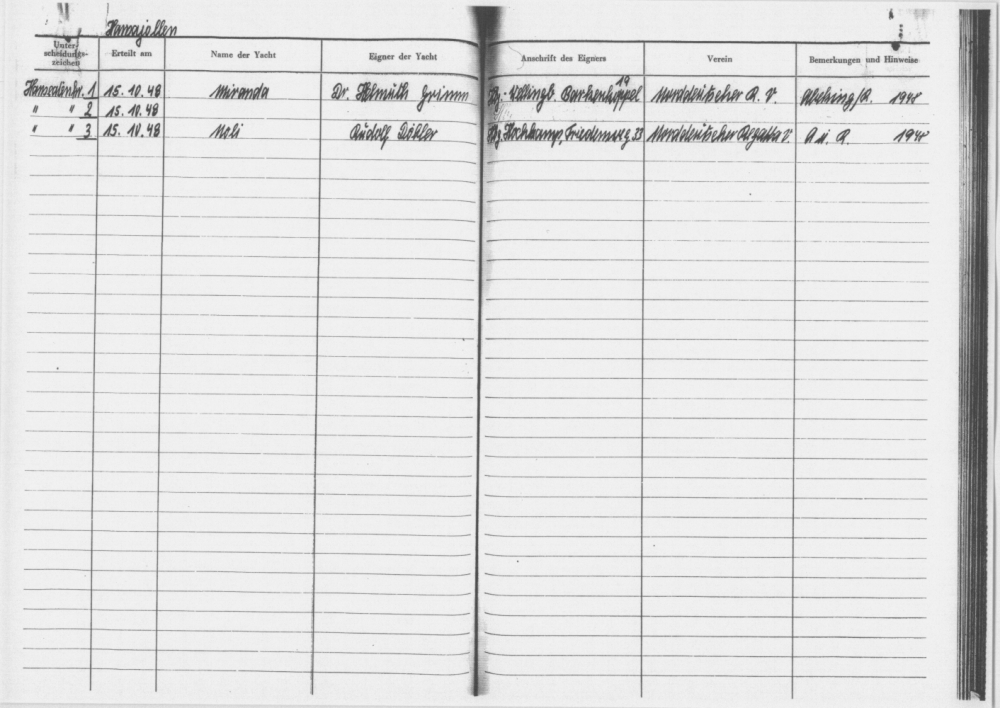 Hansajollen
Unter-scheidungs-zeichen Erteilt am Name der Yacht Eigner der Yacht Anschrift des Eigners Verein Bemerkungen und Hinweise
1 15. 10. 48 Miranda Dr. Helmuth Grimm Hbg. Barkenkoppel 19 Norddeutscher R. V. 1948
" " 2 15. 10. 48
" " 3 15. 10. 48 Rudolf Hbg. Hochkamp, 33 Norddeutscher Regatta V. A. u. R. 1948